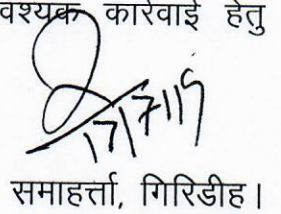 वश्यक कार्रवाई हेतु
17/7/19
समाहर्त्ता, गिरिडीह।